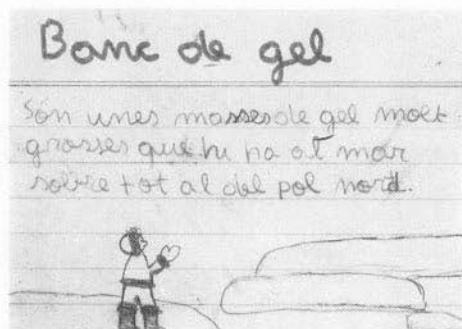 Banc de gel
Són unes massesde gel molt
grosses que hi ha al mar
sobre tot al del pol nord.